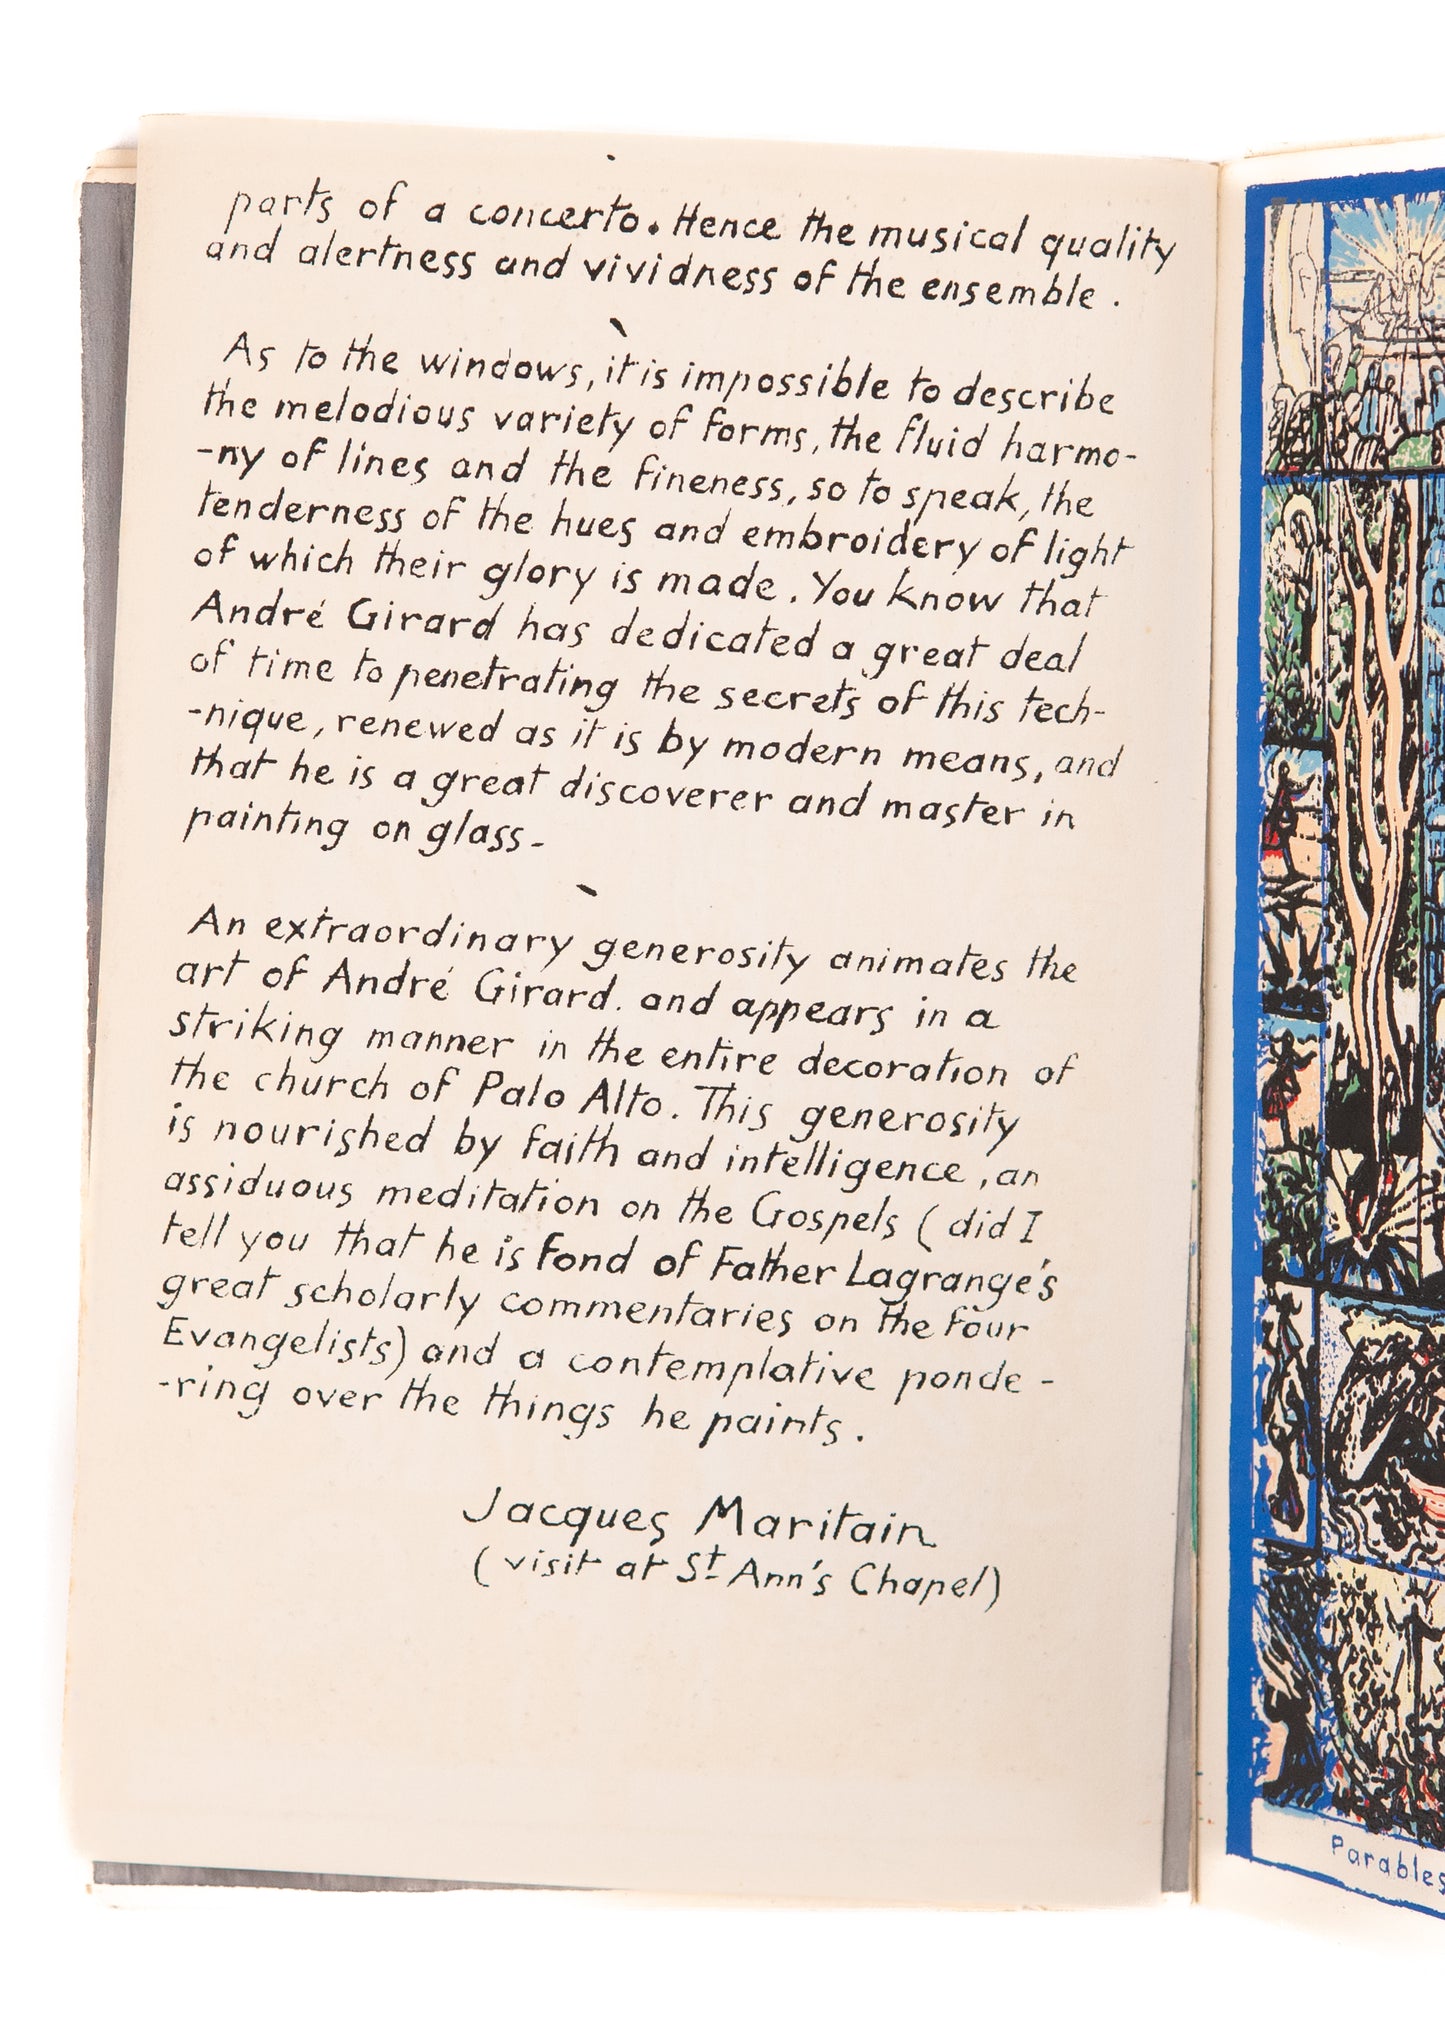 parts of a concerto. Hence the musical quality
and alertness and vividness of the ensemble.
As to the windows, it is impossible to describe
the melodious variety of forms, the fluid harmo-
-ny of lines and the fineness, so to speak, the
tenderness of the hues and embroidery of light
of which their glory is made. You know that
André Girard has dedicated a great deal
of time to penetrating the secrets of this tech-
-nique, renewed as it is by modern means, and
that he is a great discoverer and master in
painting on glass-
An extraordinary generosity animates the
art of André Girard. and appears in a
striking manner in the entire decoration of
the church of Palo Alto. This generosity
is nourished by faith and intelligence, an
assiduous meditation on the Gospels (did I
tell you that he is fond of Father Lagrange's
great scholarly commentaries on the four
Evangelists) and a contemplative ponde-
-ring over the things he paints.
Jacques Maritain
(visit at St Ann's Chapel)
Parables